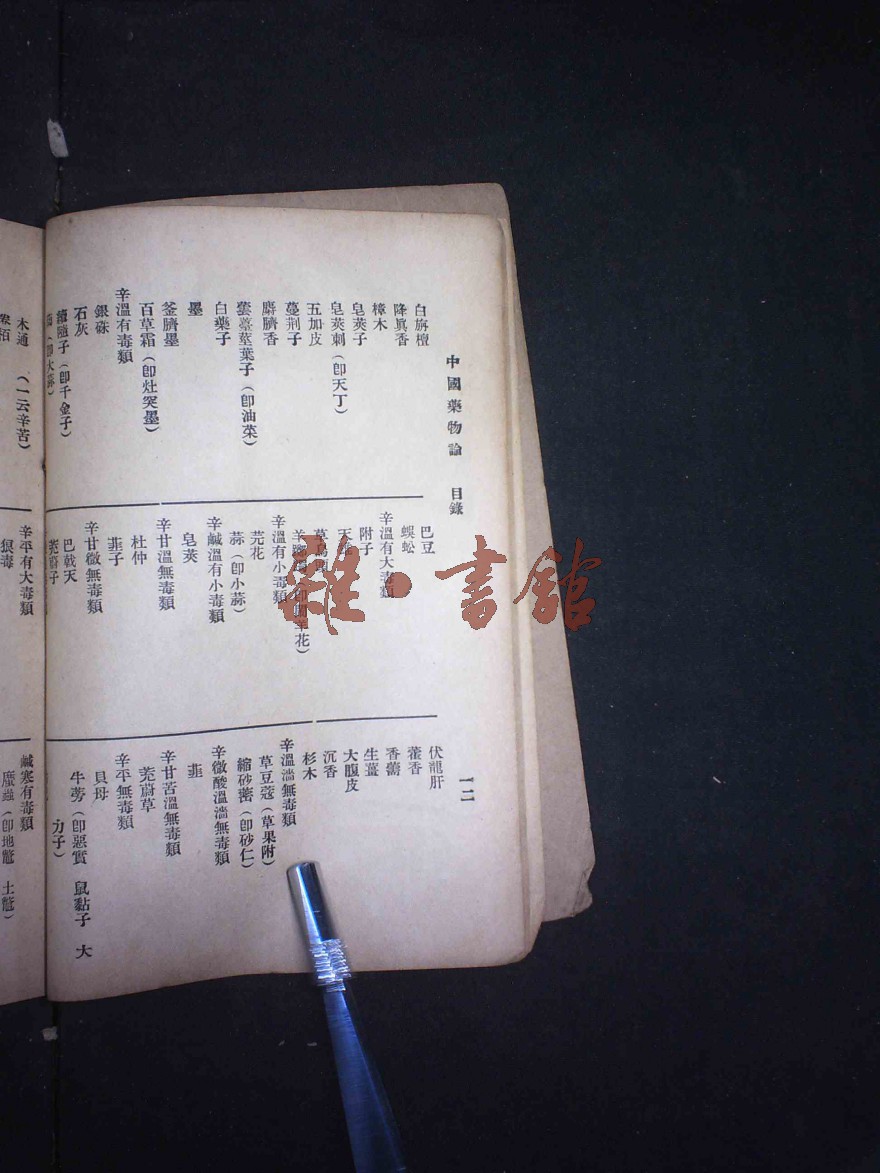 中國藥物論　目錄
一二
白旃檀
降眞香
樟木
皂莢子
皂莢刺（卽天丁）
五加皮
蔓荆子
麝臍香
蕓薹莖葉子（卽油菜）
白藥子
墨
釜臍墨
百草霜（卽灶突墨）
辛溫有毒類
銀硃
石灰
續隨子（卽千金子）
巴豆
蜈蚣
辛溫有大毒類
附子
辛溫有小毒類
芫花
蒜（卽小蒜）
辛鹹溫有小毒類
皂莢
辛甘溫無毒類
杜仲
韮子
辛甘微無毒類
巴戟天
茺蔚子
伏龍肝
藿香
香薷
生薑
大腹皮
沉香
杉木
辛溫濇無毒類
草豆蔻（草果附）
縮砂蔤（卽砂仁）
辛微酸溫濇無毒類
韮
辛甘苦溫無毒類
茺蔚草
辛平無毒類
貝母
牛蒡（卽惡實　鼠黏子　大
力子）
木通　（一云辛苦）
辛平有大毒類
狼毒
鹹寒有毒類
䗪蟲（卽地鼈　土鼈）
雜·書館